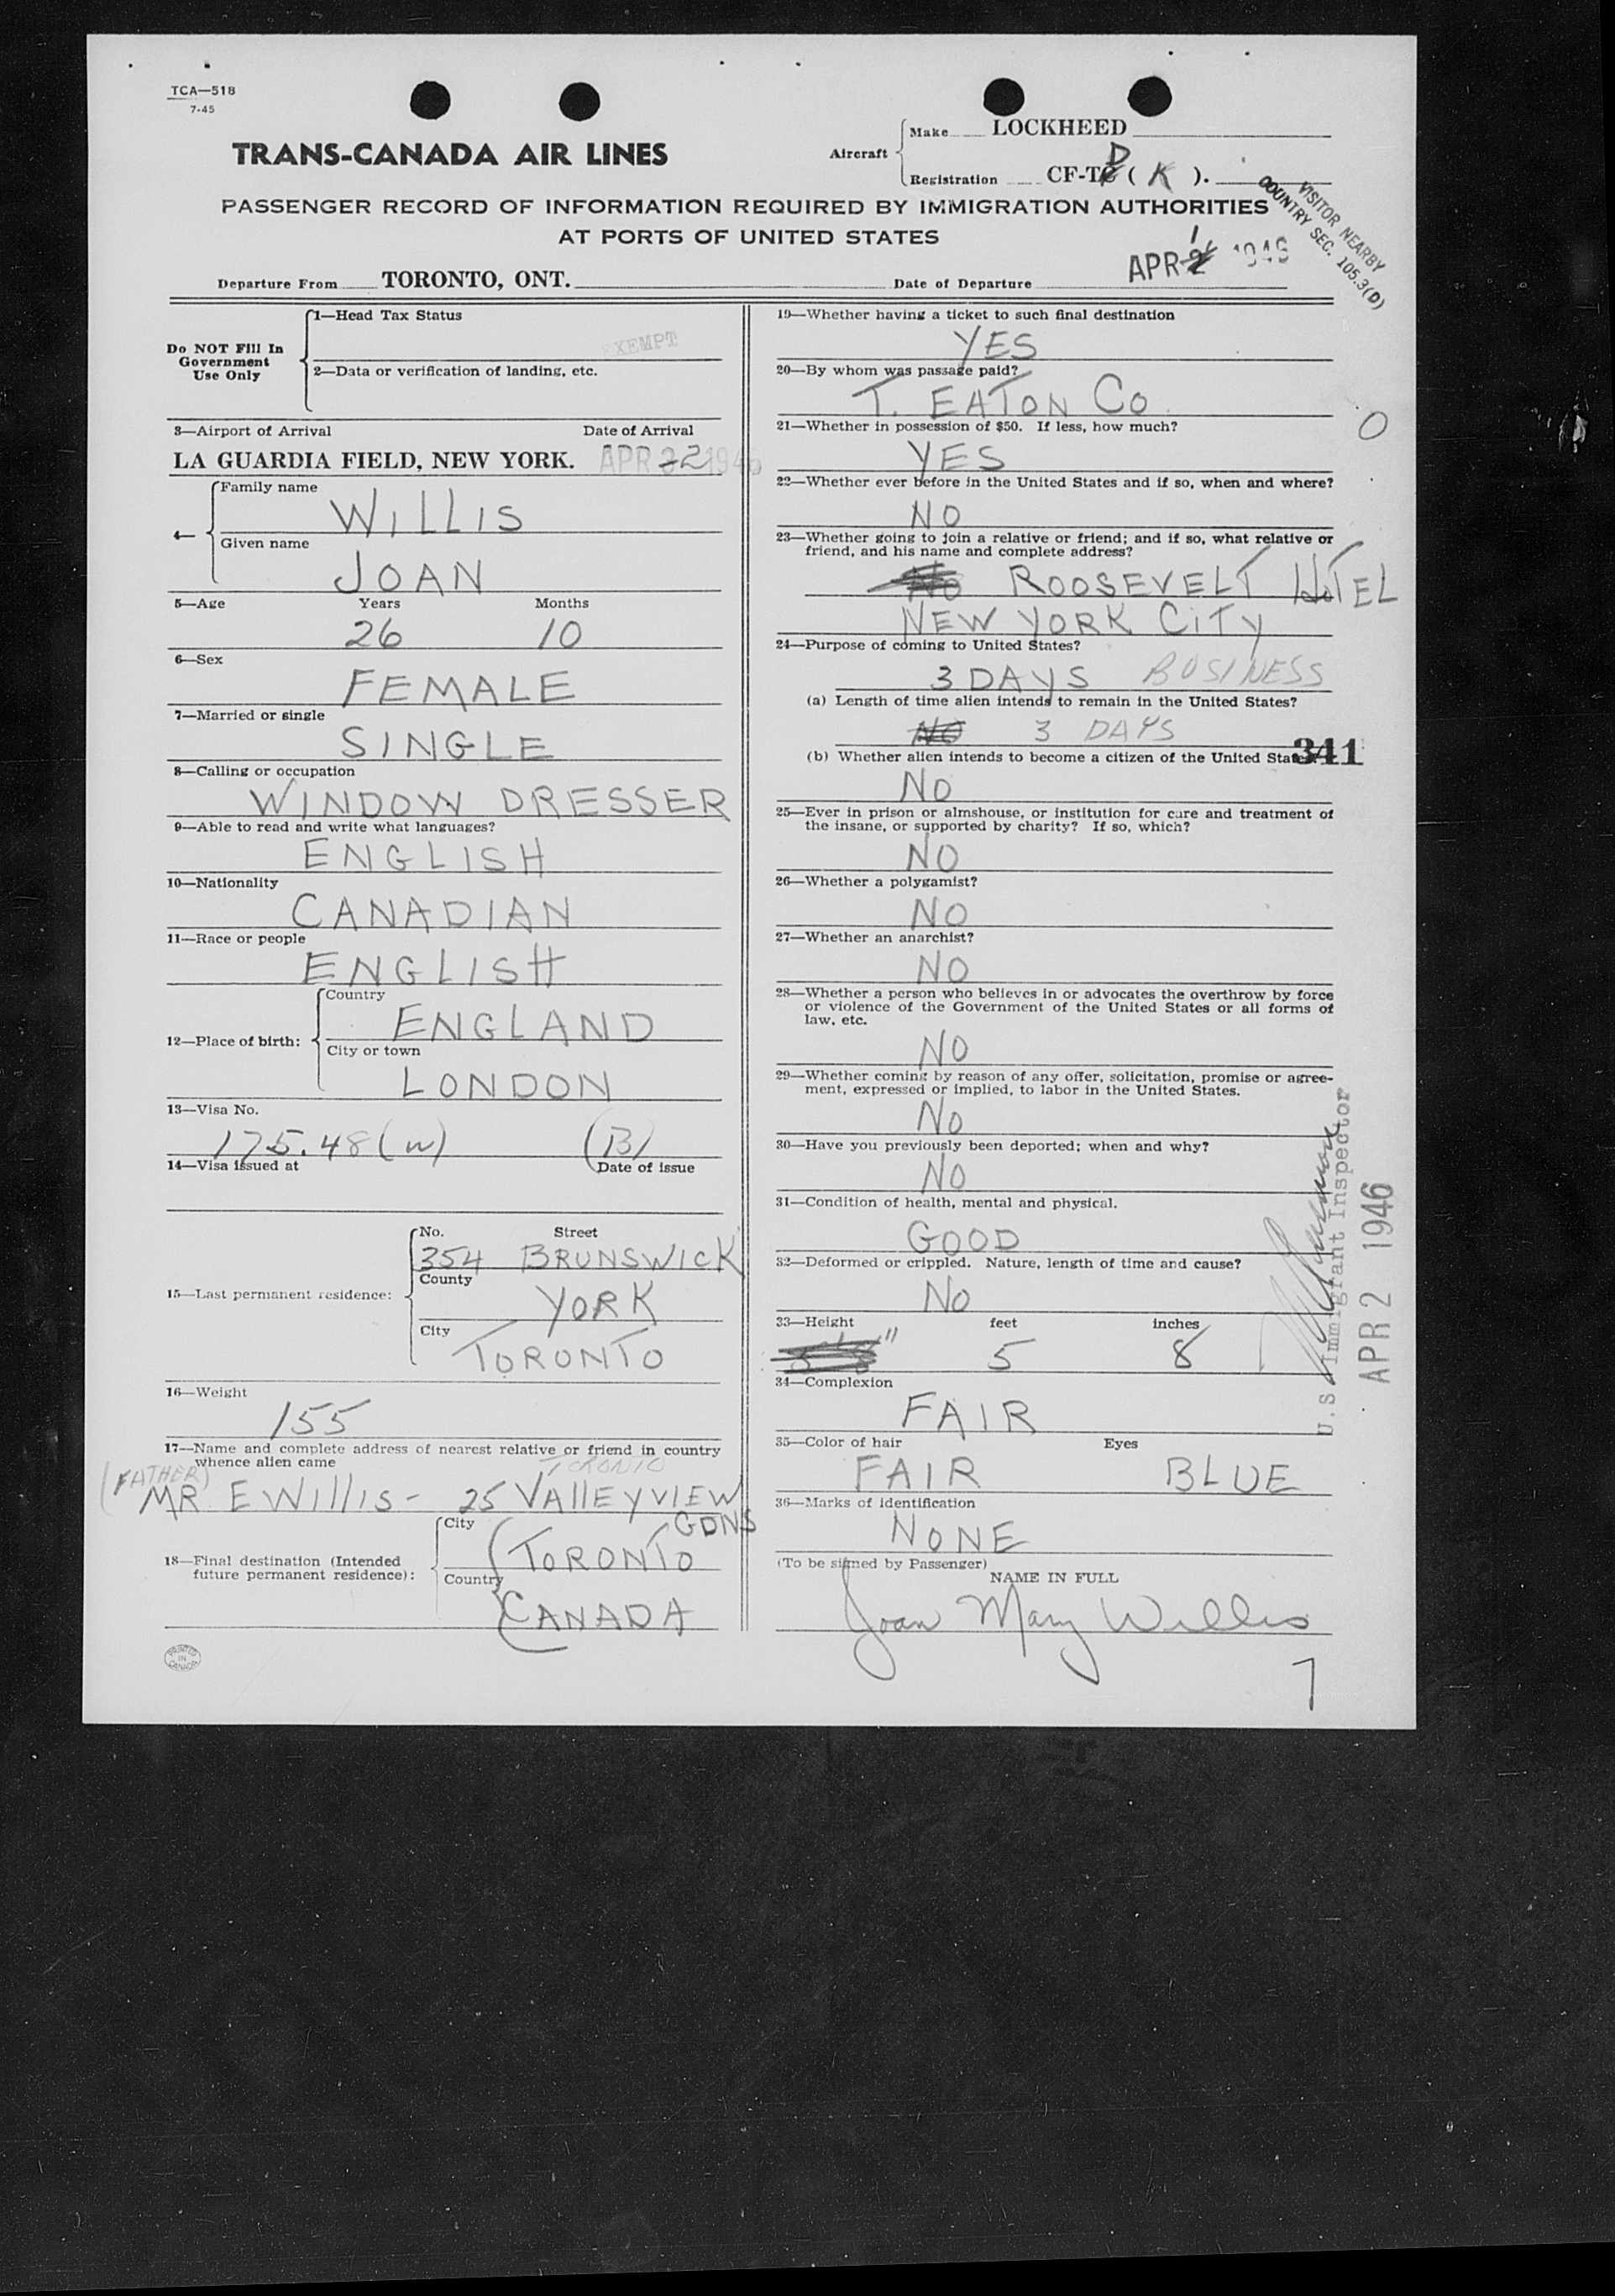 TCA—518
7-45
TRANS-CANADA AIR LINES
Aircraft
Make LOCKHEED
Registration CF-TD ( K ).
PASSENGER RECORD OF INFORMATION REQUIRED BY IMMIGRATION AUTHORITIES
AT PORTS OF UNITED STATES
VISITOR NEARBY
COUNTRY SEC. 105.3(D)
Departure From TORONTO, ONT. Date of Departure APR 1 1946
Do NOT Fill In
Government
Use Only
1—Head Tax Status
EXEMPT
2—Data or verification of landing, etc.
3—Airport of Arrival Date of Arrival
LA GUARDIA FIELD, NEW YORK. APR 2 1946
4—
Family name
WILLIS
Given name
JOAN
5—Age Years Months
26 10
6—Sex
FEMALE
7—Married or single
SINGLE
8—Calling or occupation
WINDOW DRESSER
9—Able to read and write what languages?
ENGLISH
10—Nationality
CANADIAN
11—Race or people
ENGLISH
12—Place of birth:
Country
ENGLAND
City or town
LONDON
13—Visa No.
175.48(W) (B)
14—Visa issued at Date of issue
15—Last permanent residence:
No. Street
354 BRUNSWICK
County
YORK
City
TORONTO
16—Weight
155
17—Name and complete address of nearest relative or friend in country
whence alien came
(FATHER) TORONTO
MR E WILLIS - 25 VALLEYVIEW
GDNS
18—Final destination (Intended
future permanent residence):
City
TORONTO
Country
CANADA
PRINTED
IN
CANADA
19—Whether having a ticket to such final destination
YES
20—By whom was passage paid?
T. EATON CO.
21—Whether in possession of $50. If less, how much?
0
YES
22—Whether ever before in the United States and if so, when and where?
NO
23—Whether going to join a relative or friend; and if so, what relative or
friend, and his name and complete address?
NO ROOSEVELT HOTEL
NEW YORK CITY
24—Purpose of coming to United States?
3 DAYS BUSINESS
(a) Length of time alien intends to remain in the United States?
NO 3 DAYS
(b) Whether alien intends to become a citizen of the United States?
341
NO
25—Ever in prison or almshouse, or institution for care and treatment of
the insane, or supported by charity? If so, which?
NO
26—Whether a polygamist?
NO
27—Whether an anarchist?
NO
28—Whether a person who believes in or advocates the overthrow by force
or violence of the Government of the United States or all forms of
law, etc.
NO
29—Whether coming by reason of any offer, solicitation, promise or agree-
ment, expressed or implied, to labor in the United States.
NO
30—Have you previously been deported; when and why?
NO
31—Condition of health, mental and physical.
GOOD
32—Deformed or crippled. Nature, length of time and cause?
NO
33—Height feet inches
5 8
34—Complexion
FAIR
35—Color of hair Eyes
FAIR BLUE
36—Marks of identification
NONE
(To be signed by Passenger)
NAME IN FULL
Joan Mary Willis
7
U.S Immigrant Inspector
APR 2 1946